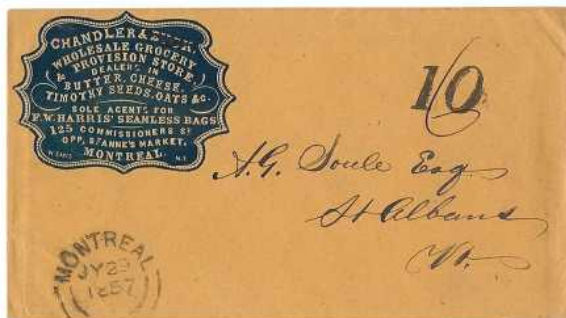 CHANDLER &
WHOLESALE GROCERY
& PROVISION STORE,
DEALERS IN
BUTTER, CHEESE,
TIMOTHY SEEDS, OATS &c.
SOLE AGENTS FOR
F.W. HARRIS' SEAMLESS BAGS
125 COMMISSIONERS ST
OPP. ST ANNE'S MARKET,
MONTREAL.
N.Y.
10
A.G. Soule Esq
St Albans
Vt.
MONTREAL
JY 29
1857